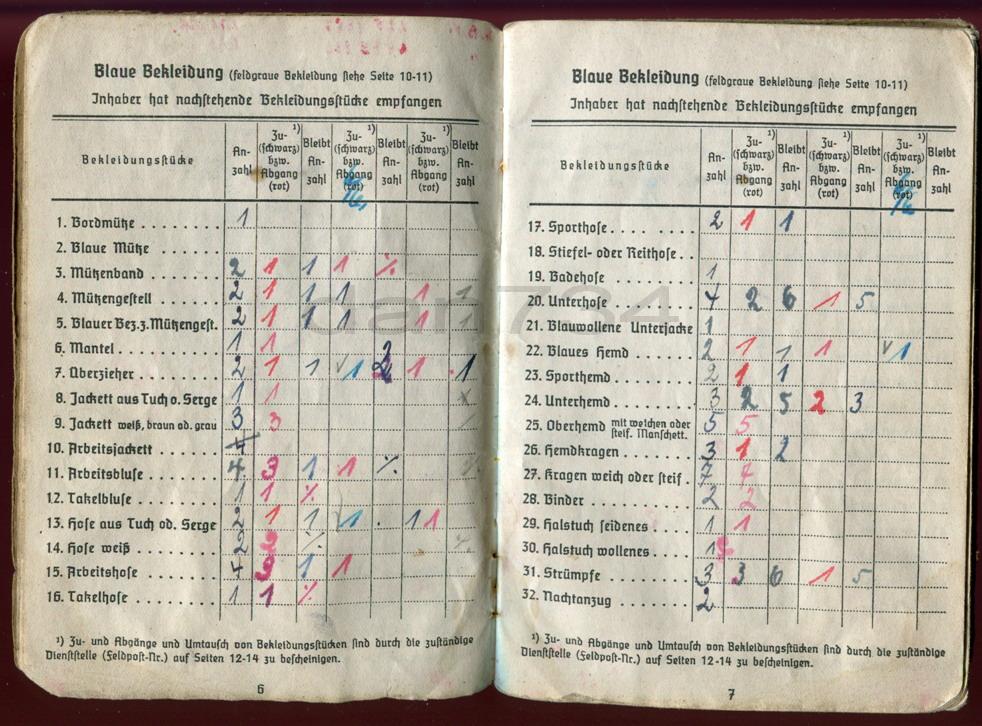 Blaue Bekleidung (feldgraue Bekleidung siehe Seite 10-11)
Inhaber hat nachstehende Bekleidungsstücke empfangen
Bekleidungsstücke An-zahl Zu- (schwarz) bzw. Abgang (rot) ¹) Bleibt An-zahl Zu- (schwarz) bzw. Abgang (rot) ¹) Bleibt An-zahl Zu- (schwarz) bzw. Abgang (rot) ¹) Bleibt An-zahl
1. Bordmütze 1
2. Blaue Mütze
3. Mützenband 2 1 1 1 %
4. Mützengestell 2 1 1 1 1 1
5. Blauer Bez. z. Mützengest. 2 1 1 1 1 1
6. Mantel 1 1
7. Überzieher 2 1 1 1 2 1 1
8. Jackett aus Tuch o. Serge 1 1 x
9. Jackett weiß, braun od. grau 3 3
10. Arbeitsjackett
11. Arbeitsbluse 4 3 1 1 %
12. Takelbluse 1 1 %
13. Hose aus Tuch od. Serge 2 1 1 1 1 1
14. Hose weiß 2 2 %
15. Arbeitshose 1 1
16. Takelhose 1 1 %
¹) Zu- und Abgänge und Umtausch von Bekleidungsstücken sind durch die zuständige
Dienststelle (Feldpost-Nr.) auf Seiten 12-14 zu bescheinigen.
6
Blaue Bekleidung (feldgraue Bekleidung siehe Seite 10-11)
Inhaber hat nachstehende Bekleidungsstücke empfangen
Bekleidungsstücke An-zahl Zu- (schwarz) bzw. Abgang (rot) ¹) Bleibt An-zahl Zu- (schwarz) bzw. Abgang (rot) ¹) Bleibt An-zahl Zu- (schwarz) bzw. Abgang (rot) ¹) Bleibt An-zahl
17. Sporthose 2 1 1
18. Stiefel- oder Reithose
19. Badehose 1
20. Unterhose 4 2 6 1 5
21. Blauwollene Unterjacke 1
22. Blaues Hemd 2 1 1 1 1
23. Sporthemd 2 1 1
24. Unterhemd 3 2 5 2 3
25. Oberhemd mit weichen oder steif. Manschett. 5 5
26. Hemdkragen 3 1 2
27. Kragen weich oder steif 7 7
28. Binder 2 2
29. Halstuch seidenes 1 1
30. Halstuch wollenes 1
31. Strümpfe 3 3 6 1 5
32. Nachtanzug 2
¹) Zu- und Abgänge und Umtausch von Bekleidungsstücken sind durch die zuständige
Dienststelle (Feldpost-Nr.) auf Seiten 12-14 zu bescheinigen.
7
dan734